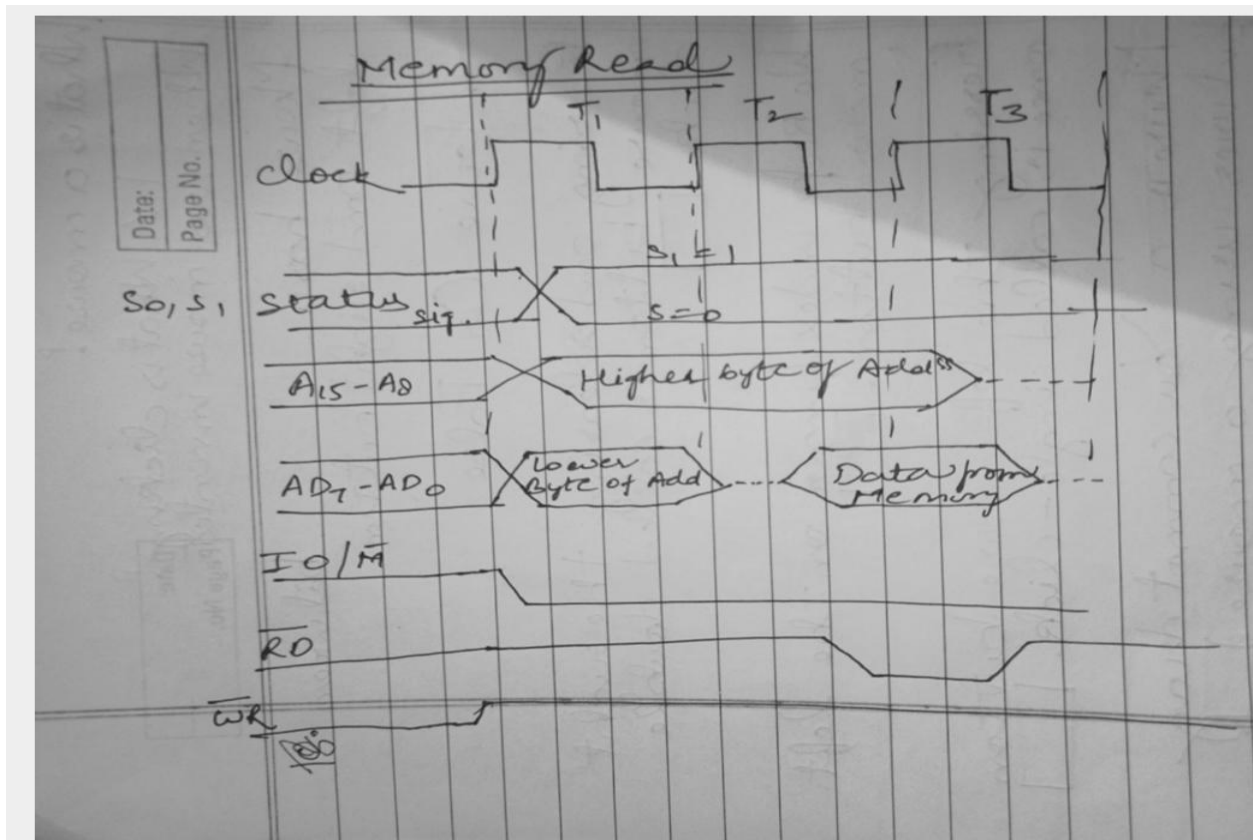 Memory Read
T1 T2 T3
Clock
S1 = 1
S0, S1 Status sig. S=0
A15-A8 Higher byte of Address
AD7-AD0 Lower Byte of Add Data from Memory
IO/M̅
R̅D̅
W̅R̅
Date:
Page No.